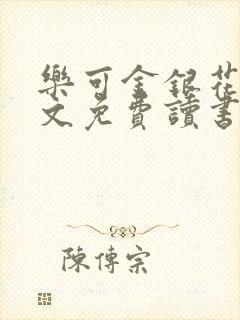 樂可金銀花
文免費讀書
陳傳宗